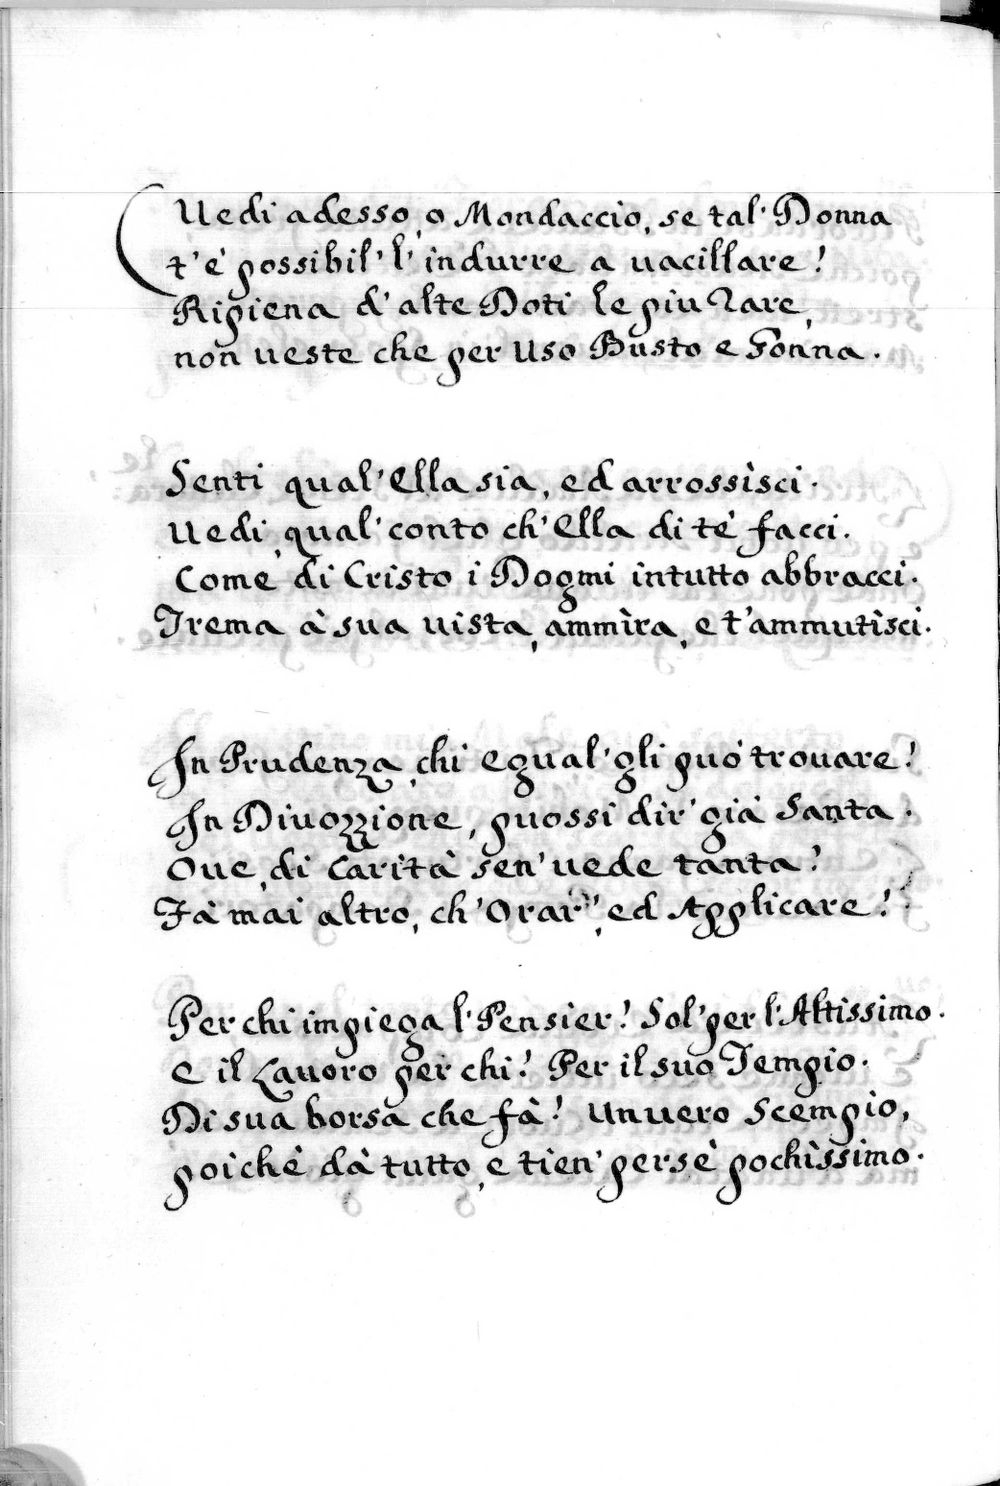 Uedi adesso, o Mondaccio, se tal' Donna
t'è possibil' l' indurre a uacillare!
Ripiena d' alte Doti le piu Rare,
non ueste che per Uso Busto e Gonna.
Senti qual' Ella sia, ed arrossìsci.
Uedi, qual' conto ch' Ella di tè facci.
Come di Cristo i Dogmi intutto abbracci.
Trema à sua uista, ammìra, e t'ammutìsci.
In Prudenza, chi egual' gli può trouare!
In Diuozzione, puossi dir' già Santa.
Oue, di Carità sen' uede tanta!
Fà mai altro, ch' Orar', ed Applicare!
Per chi impiega l' Pensier! Sol' per l' Altissimo.
E il Lauoro per chi! Per il suo Tempio.
Di sua borsa che fà! Un uero Scempio,
poichè dà tutto, e tien' persè pochìssimo.